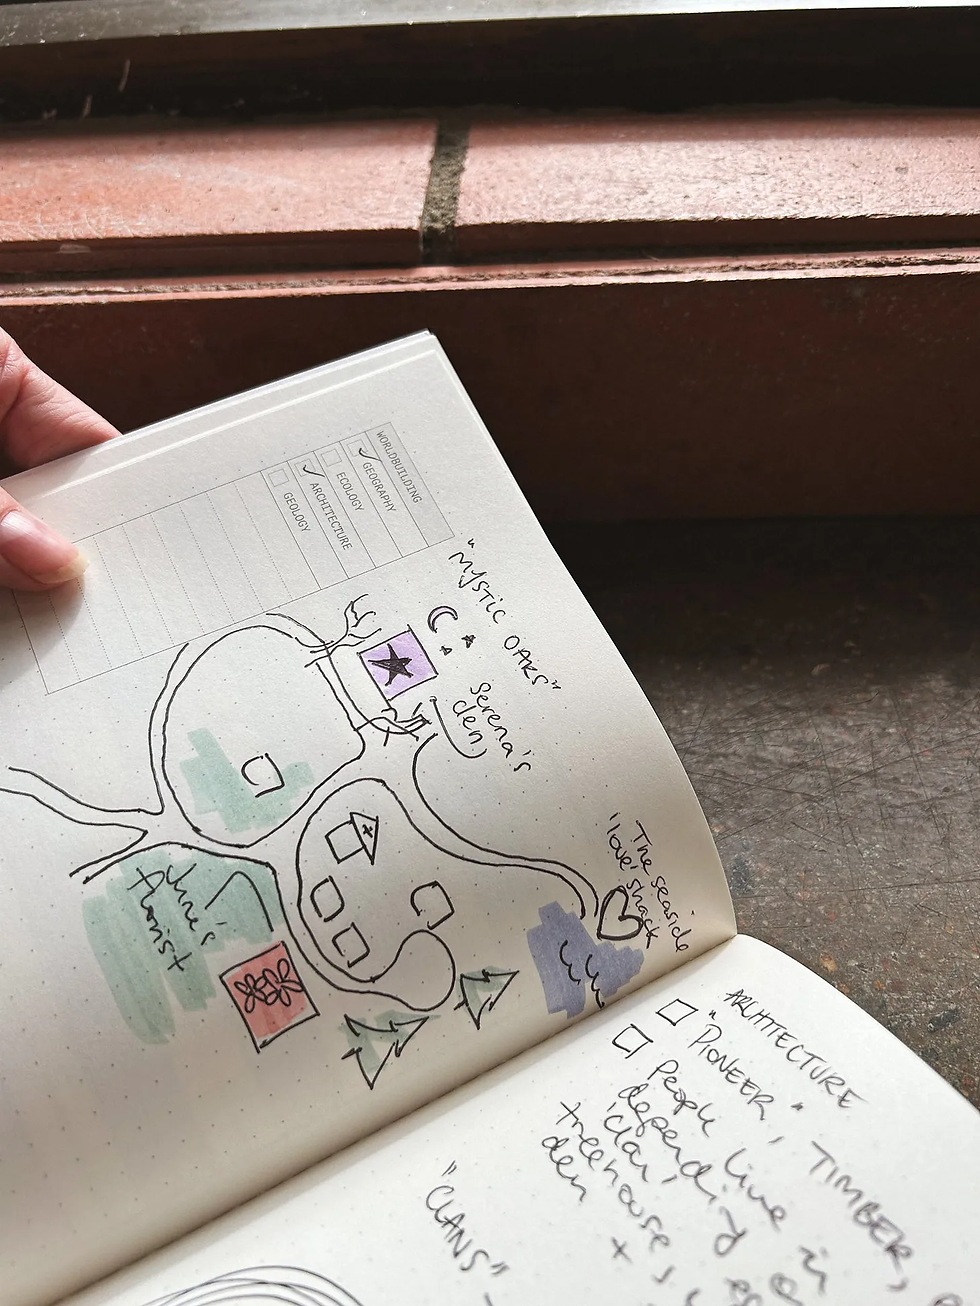 WORLDBUILDING
GEOGRAPHY
ECOLOGY
ARCHITECTURE
GEOLOGY
"MYSTIC OAKS"
Serena's
den
The seaside
'love' shack
June's
florist
ARCHITECTURE
"PIONEER", TIMBER,
People live in
depending on
'clan',
treehouse
den +
"CLANS"